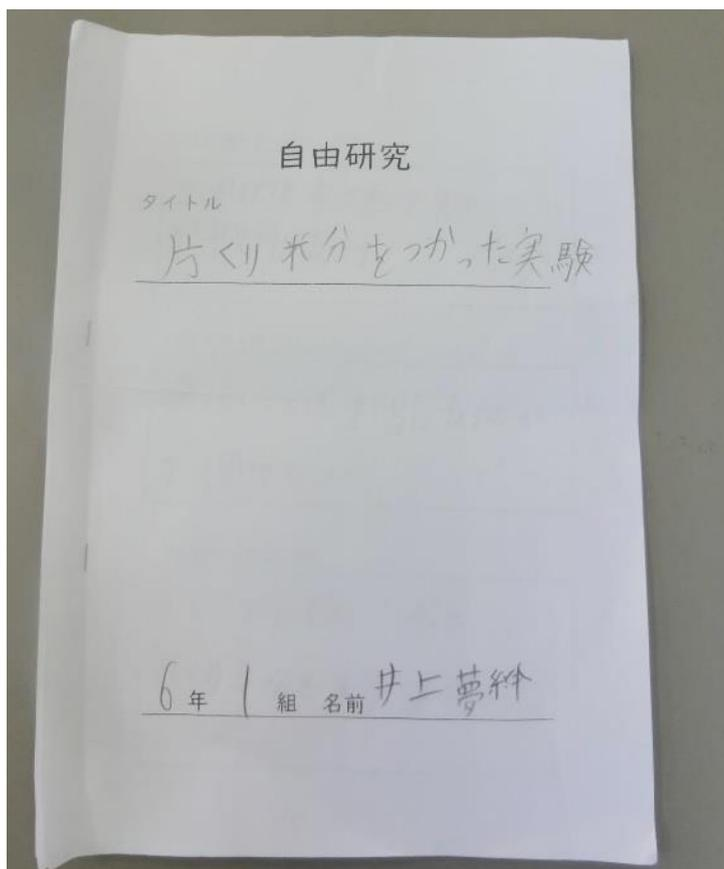 自由研究
タイトル
片くり粉をつかった実験
6年 1組 名前 井上夢絆